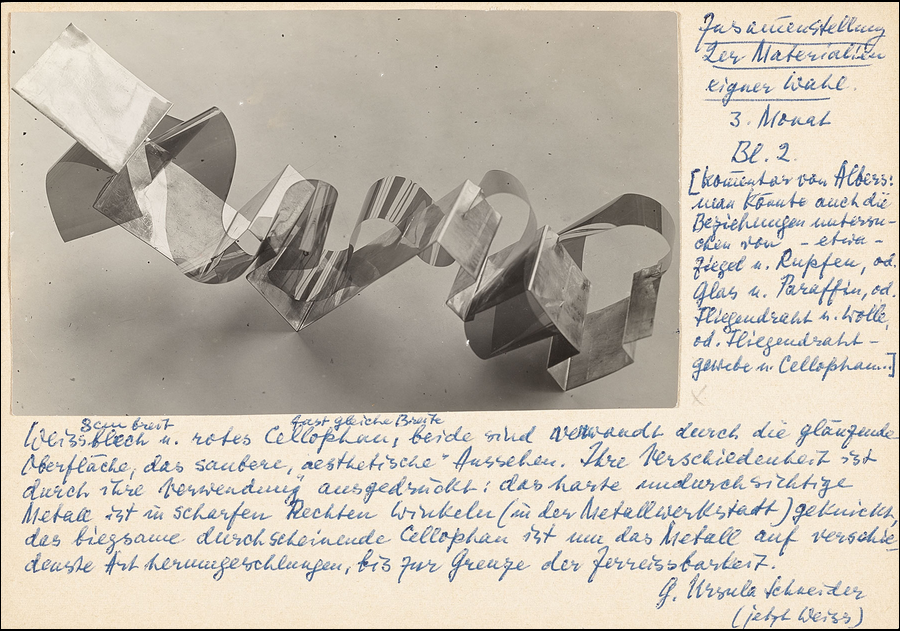 Zusam̅enstellung
zer Materialien
eigner Wahl.
3. Monat
Bl. 2.
[Kom̅entar von Albers:
man könnte auch die
Beziehungen untersu-
chen von - etwa -
Ziegel u. Rupfen, od.
Glas u. Paraffin, od.
Fliegendraht u. Wolle,
od. Fliegendraht-
gewebe u. Cellophan..]
8cm breit fast gleiche Breite
Weissblech u. rotes Cellophan, beide sind verwandt durch die glänzende
Oberfläche, das saubere, „aesthetische" Aussehen. Ihre Verschiedenheit ist
durch ihre Verwendung ausgedrückt: das harte undurchsichtige
Metall ist in scharfen Rechten Winkeln (in der Metallwerkstatt) geknickt,
das biegsame durchscheinende Cellophan ist um das Metall auf verschie-
denste Art herumgeschlungen, bis zur Grenze der Zerreissbarkeit.
G. Ursula Schneider
(jetzt Weiss)